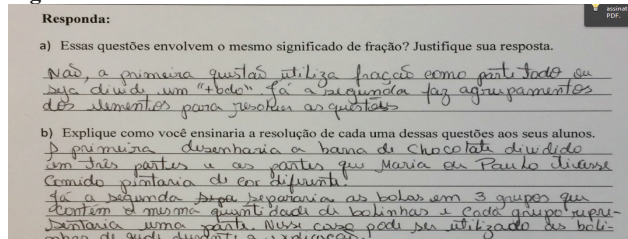 Responda:
assinat
PDF.
a) Essas questões envolvem o mesmo significado de fração? Justifique sua resposta.
Não, a primeira questão utiliza fração como parte todo, ou
seja divide um "+bolo". Já a segunda faz agrupamentos
dos elementos para resolver as questões
b) Explique como você ensinaria a resolução de cada uma dessas questões aos seus alunos.
A primeira desenharia a barra de chocolate dividido
em três partes e as partes que Maria ou Paulo tivesse
comido pintaria de cor diferente.
Já a segunda separaria as bolas em 3 grupos que
contém a mesma quantidade de bolinhas e cada grupo repre-
sentaria uma parte. Nesse caso pode ser utilizado as boli-
nhas de gude durante a explicação.